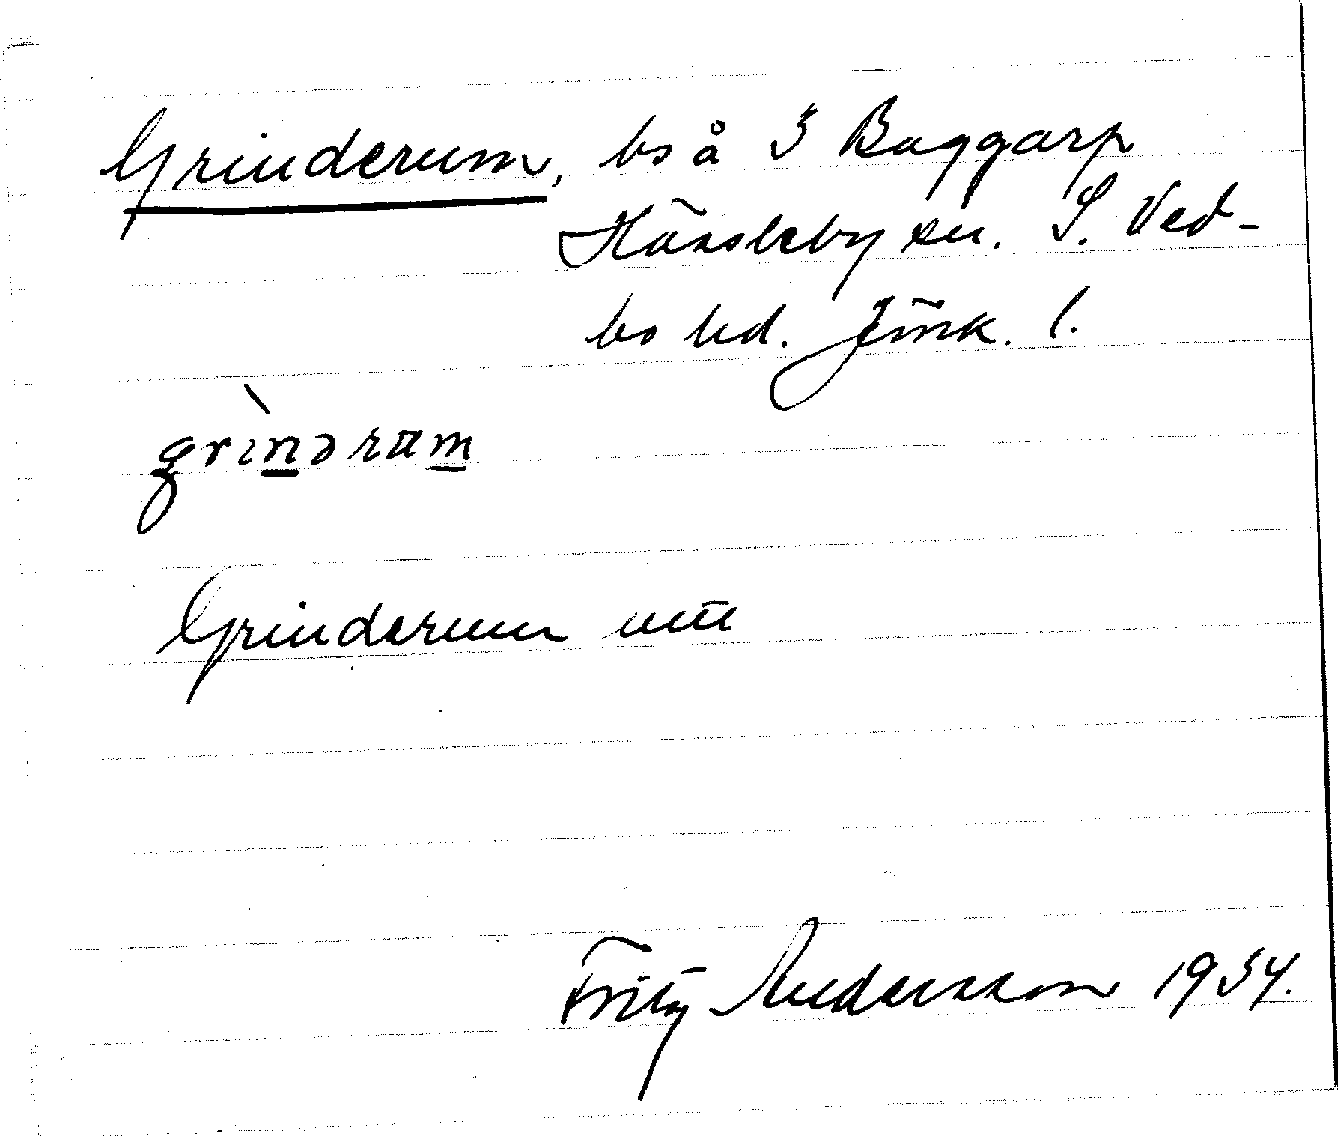 Grinderum, bs å 3 Baggarp
Hässleby sn. S. Ved-
bo hd. Jönk. l.
grìnəram
Grinderum
Fritz Andersson 1934.